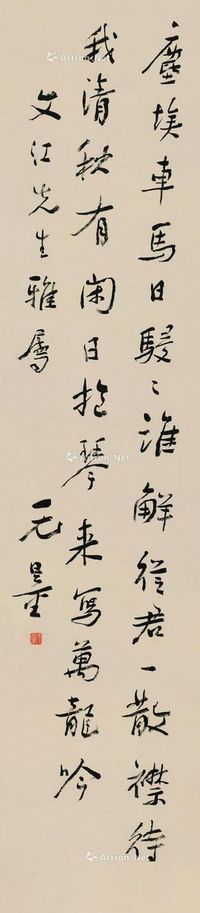 塵埃車馬日駸〻誰解從君一散襟待
我清秋有閑日抱琴来寫萬龍吟
文江先生雅屬
元
Artron.Net
Artron.Net
Artron.Net